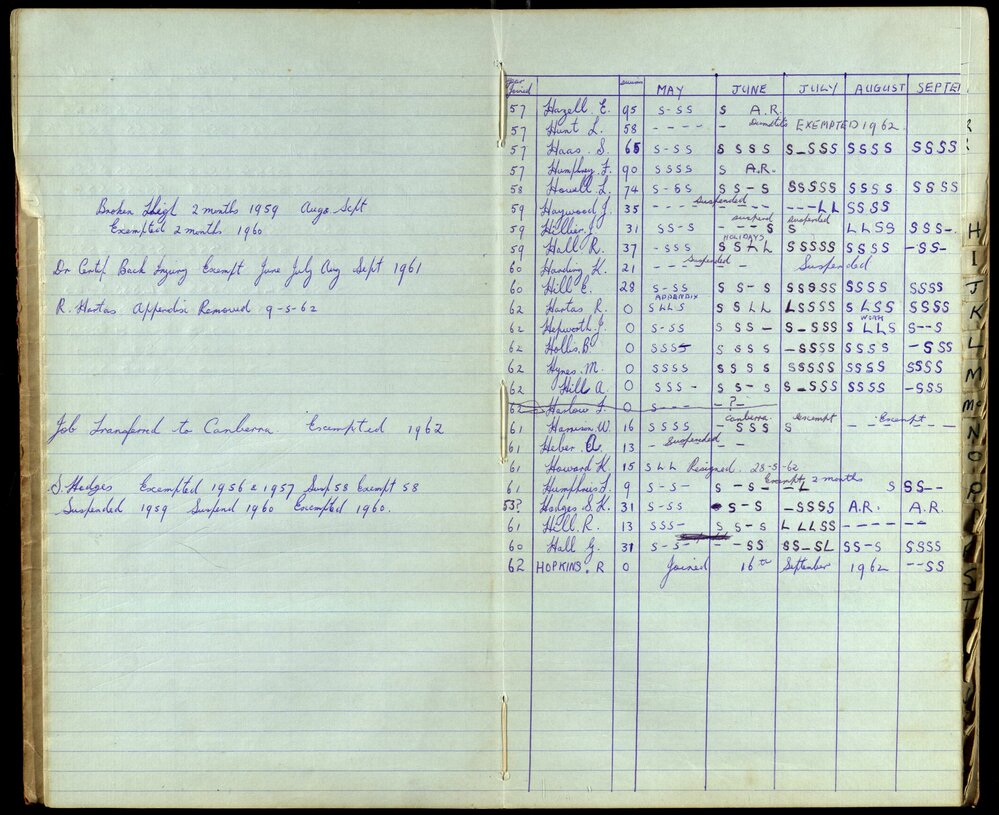 Broken Thigh 2 months 1959 Aug & Sept
Exempted 2 months 1960
Dr Certif. Back Injury Exempt June July Aug Sept 1961
R. Hartas Appendix Removed 9-5-62
Job Transferred to Canberra Exempted 1962
S. Hedges Exempted 1956 & 1957 Susp 58 Exempt 58
Suspended 1959 Suspend 1960 Exempted 1960.
Year Joined swims MAY JUNE JULY AUGUST SEPTE
57 Hazell. E. 95 S-SS S A.R.
57 Hunt L. 58 ---- - EXEMPTED 1962.
57 Haas. S. 65 S-SS SSSS S-SSS SSSS SSSS
57 Humphrey. F. 90 SSSS S A.R.
58 Howell L. 74 S-SS SS-S SSSSS SSSS SSSS
59 Haywood J. 35 ---- Suspended ---- --LL SSSS
59 Hillier. J. 31 SS-S suspend ---S suspended S LLSS SSS-
59 Hall R. 37 -SSS HOLIDAYS SSLL SSSSS SSSS -SS-
60 Harding K. 21 ---- Suspended -- Suspended
60 Hill E. 28 S-SS SS-S SSSSS SSSS SSSS
62 Hartas R. 0 APPENDIX SLLS SSLL LSSSS SLSS SSSS
62 Hepworth. J. 0 S-SS SSS- S-SSS WORK SLLS S--S
62 Hollis. B. 0 SSSS SSSS -SSSS SSSS -SSS
62 Hynes. M. 0 SSSS SSSS SSSSS SSSS SSSS
62 Hill A. 0 SSS- SS-S S-SSS SSSS -SSS
62 Harlow J. 0 S--- -?-
61 Harrison. W. 16 SSSS Canberra -SSS exempt S Exempt -----
61 Heber. A. 13 - Suspended --
61 Howard K. 15 SLL Resigned. 28-5-62
61 Humphries F. 9 S-S- S-S- Exempt 2 months -L S SS--
53? Hedges S. K. 31 S-SS S-S -SSSS A.R. A.R.
61 Hill. R. 13 SSS- SS-S LLLSS ---- --
60 Hall G. 31 S-S- --SS SS-SL SS-S SSSS
62 HOPKINS. R 0 Joined 16th September 1962 --SS
H
I
J
K
L
M
Mc
N
O
P
R
S
T